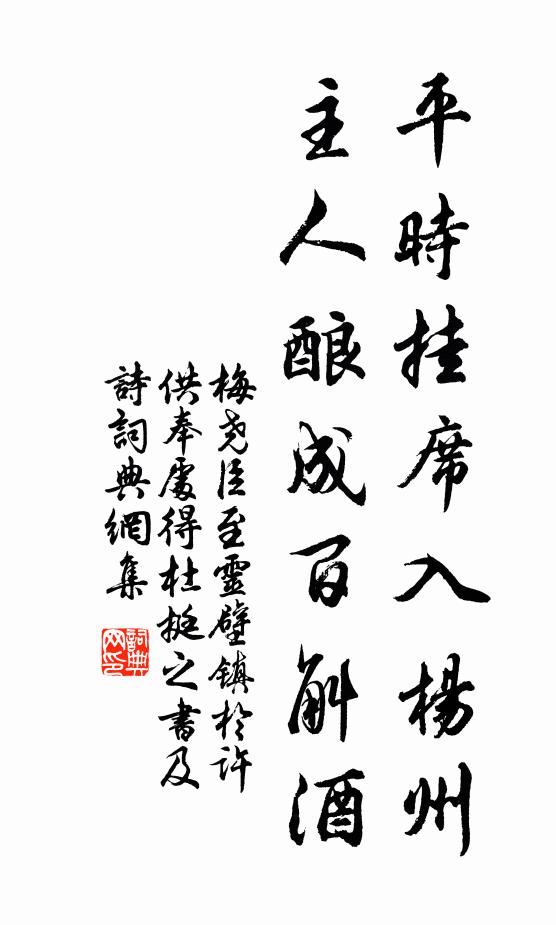 平時挂席入楊州
主人酿成百斛酒
梅尧臣至靈壁鎮於許
供奉處得杜挺之書及
詩詞典網集
詞典网印